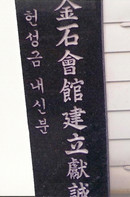 金石會館建立獻誠
헌성금 내신분